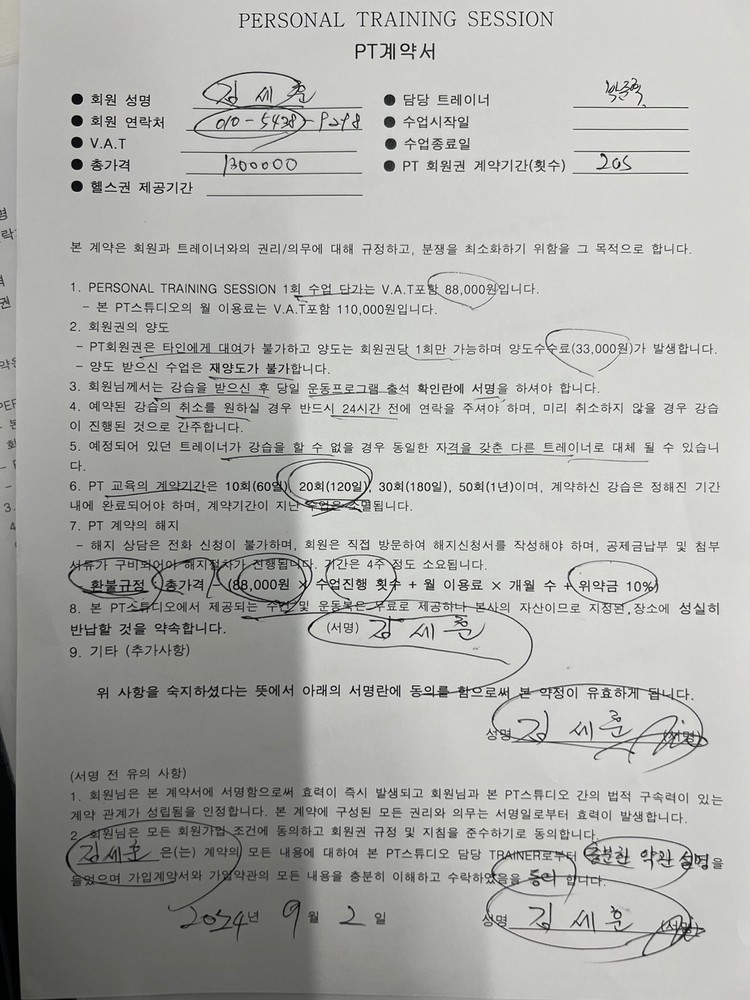 PERSONAL TRAINING SESSION
PT계약서
● 회원 성명 김세훈 ● 담당 트레이너
● 회원 연락처 010-5428-9298 ● 수업시작일
● V.A.T ● 수업종료일
● 총가격 1300000 ● PT 회원권 계약기간(횟수) 20s
● 헬스권 제공기간
본 계약은 회원과 트레이너와의 권리/의무에 대해 규정하고, 분쟁을 최소화하기 위함을 그 목적으로 합니다.
1. PERSONAL TRAINING SESSION 1회 수업 단가는 V.A.T포함 88,000원입니다.
- 본 PT스튜디오의 월 이용료는 V.A.T포함 110,000원입니다.
2. 회원권의 양도
- PT회원권은 타인에게 대여가 불가하고 양도는 회원권당 1회만 가능하며 양도수수료(33,000원)가 발생합니다.
- 양도 받으신 수업은 재양도가 불가합니다.
3. 회원님께서는 강습을 받으신 후 당일 운동프로그램 출석 확인란에 서명을 하셔야 합니다.
4. 예약된 강습의 취소를 원하실 경우 반드시 24시간 전에 연락을 주셔야 하며, 미리 취소하지 않을 경우 강습
이 진행된 것으로 간주합니다.
5. 예정되어 있던 트레이너가 강습을 할 수 없을 경우 동일한 자격을 갖춘 다른 트레이너로 대체 될 수 있습니
다.
6. PT 교육의 계약기간은 10회(60일), 20회(120일), 30회(180일), 50회(1년)이며, 계약하신 강습은 정해진 기간
내에 완료되어야 하며, 계약기간이 지난 수업은 소멸됩니다.
7. PT 계약의 해지
- 해지 상담은 전화 신청이 불가하며, 회원은 직접 방문하여 해지신청서를 작성해야 하며, 공제금납부 및 첨부
서류가 구비되어야 해지절차가 진행됩니다. 기간은 4주 정도 소요됩니다.
환불규정 (총가격 - (88,000원 × 수업진행 횟수 + 월 이용료 × 개월 수 + 위약금 10%)
8. 본 PT스튜디오에서 제공되는 수업 및 운동복은 무료로 제공하나 본사의 자산이므로 지정된 장소에 성실히
반납할 것을 약속합니다. (서명) 김세훈
9. 기타 (추가사항)
위 사항을 숙지하셨다는 뜻에서 아래의 서명란에 동의를 함으로써 본 약정이 유효하게 됩니다.
성명 김세훈 (서명)
(서명 전 유의 사항)
1. 회원님은 본 계약서에 서명함으로써 효력이 즉시 발생되고 회원님과 본 PT스튜디오 간의 법적 구속력이 있는
계약 관계가 성립됨을 인정합니다. 본 계약에 구성된 모든 권리와 의무는 서명일로부터 효력이 발생합니다.
2. 회원님은 모든 회원가입 조건에 동의하고 회원권 규정 및 지침을 준수하기로 동의합니다.
김세훈 은(는) 계약의 모든 내용에 대하여 본 PT스튜디오 담당 TRAINER로부터 충분한 약관 설명을
들었으며 가입계약서와 가입약관의 모든 내용을 충분히 이해하고 수락하였음을 동의 합니다.
2024년 9월 2일 성명 김세훈 (서명)